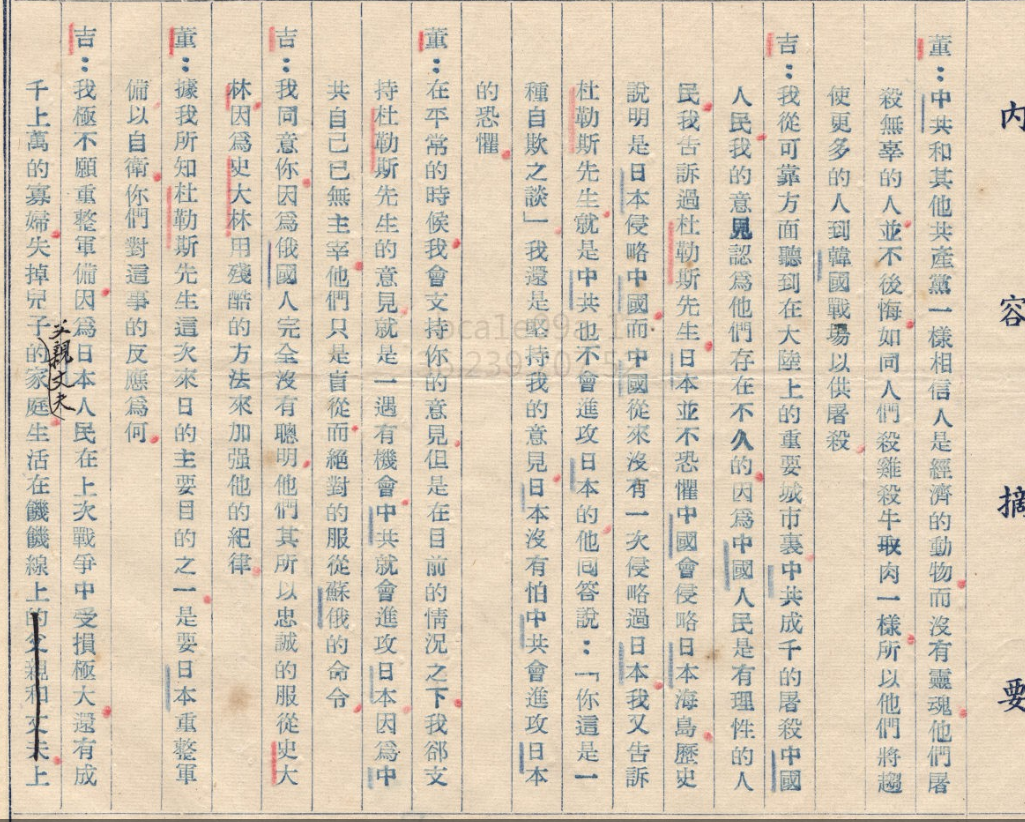 內容摘要
董：中共和其他共產黨一樣相信人是經濟的動物而沒有靈魂他們屠
殺無辜的人並不後悔如同人們殺雞殺牛取肉一樣所以他們將趨
使更多的人到韓國戰場以供屠殺
吉：我從可靠方面聽到在大陸上的重要城市裏中共成千的屠殺中國
人民我的意見認爲他們存在不久的因爲中國人民是有理性的人
民我告訴過杜勒斯先生日本並不恐懼中國會侵略日本海島歷史
說明是日本侵略中國而中國從來沒有一次侵略過日本我又告訴
杜勒斯先生就是中共也不會進攻日本的他回答說：「你這是一
種自欺之談」我還是堅持我的意見日本沒有怕中共會進攻日本
的恐懼
董：在平常的時候我會支持你的意見但是在目前的情況之下我郤支
持杜勒斯先生的意見就是一遇有機會中共就會進攻日本因爲中
共自己已無主宰他們只是盲從而絕對的服從蘇俄的命令
吉：我同意你因爲俄國人完全沒有聰明他們其所以忠誠的服從史大
林因爲史大林用殘酷的方法來加强他的紀律
董：據我所知杜勒斯先生這次來日的主要目的之一是要日本重整軍
備以自衛你們對這事的反應爲何
吉：我極不願重整軍備因爲日本人民在上次戰爭中受損極大還有成
父親丈夫
千上萬的寡婦失掉兒子的家庭生活在饑饑線上的父親和丈夫上